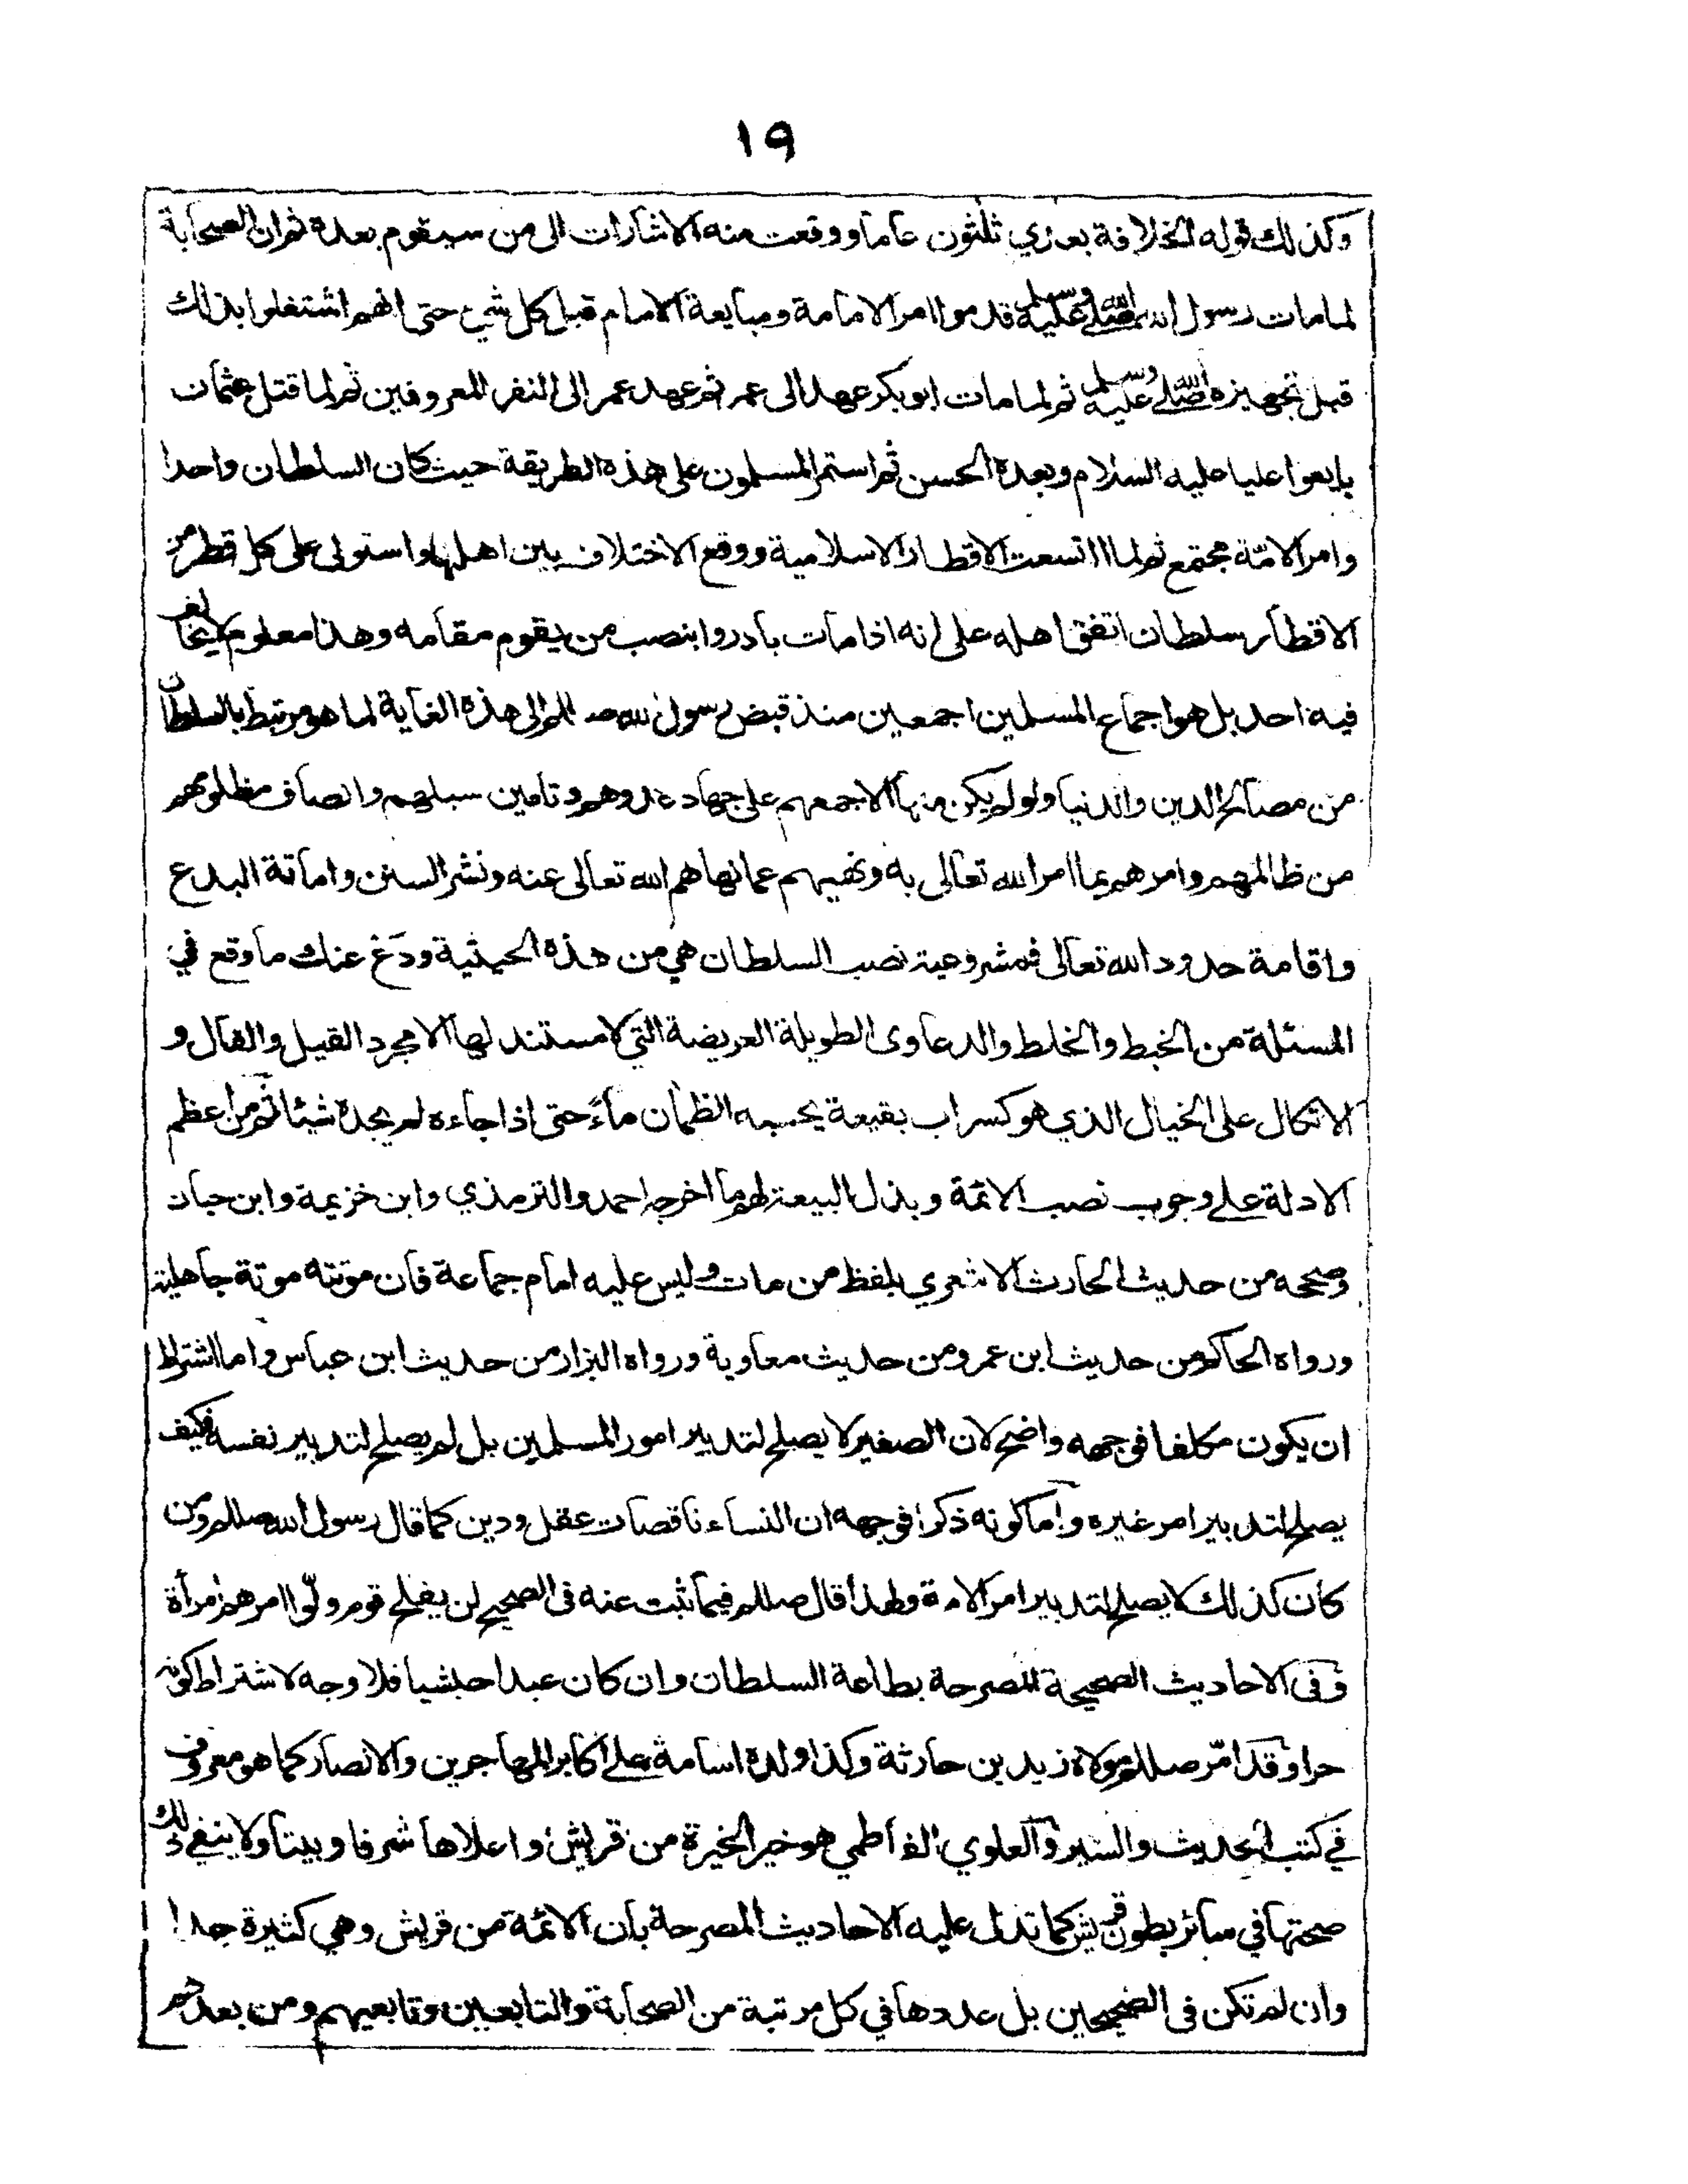 ١٩
وكذلك قوله الخلافة بعدي ثلثون عاما ووقعت منه الاشارات الى من سيقوم بعده ثم ان الصحابة
لما مات رسول الله صلى الله عليه وسلم قدموا امر الامامة ومبايعة الامام قبل كل شيء حتى انهم اشتغلوا بذلك
قبل تجهيزه صلى الله عليه وسلم ثم لما مات ابو بكر عهد الى عمر ثم عهد عمر الى النفر المعروفين ثم لما قتل عثمان
بايعوا عليا عليه السلام وبعده الحسن ثم استمر المسلمون على هذه الطريقة حيث كان السلطان واحدا
وامر الامّة مجتمع ثم لما اتسعت الاقطار الاسلامية ووقع الاختلاف بين اهلها واستولى على كل قطر من
الاقطار سلطان اتفق اهله على انه اذا مات بادروا بنصب من يقوم مقامه وهذا معلوم لا يخالف
فيه احد بل هو اجماع المسلمين اجمعين منذ قبض رسول الله صللم الى هذه الغاية لما هو مرتبط بالسلطان
من مصالح الدين والدنيا ولو لم يكن منها الا جمعهم على جهاد عدوهم وتامين سبلهم وانصاف مظلومهم
من ظالمهم وامرهم بما امر الله تعالى به ونهيهم عما نهاهم الله تعالى عنه ونشر السنن واماتة البدع
واقامة حدود الله تعالى فمشروعية نصب السلطان هي من هذه الحيثية ودَع عنك ما وقع في
المسئلة من الخبط والخلط والدعاوى الطويلة العريضة التي لا مستند لها الا مجرد القيل والقال و
الاتكال على الخيال الذي هو كسراب بقيعة يحسبه الظمان ماءً حتى اذا جاءه لم يجده شيئا ثم من اعظم
الادلة على وجوب نصب الائمة وبذل البيعة لهم ما اخرجه احمد والترمذي وابن خزيمة وابن حبان
وصححه من حديث الحارث الاشعري بلفظ من مات وليس عليه امام جماعة فان موتته موتة جاهلية
ورواه الحاكم من حديث ابن عمر ومن حديث معاوية ورواه البزار من حديث ابن عباس واما اشتراط
ان يكون مكلفا فوجهه واضح لان الصغير لا يصلح لتدبير امور المسلمين بل لم يصلح لتدبير نفسه فكيف
يصلح لتدبير امر غيره واما كونه ذكرا فوجهه ان النساء ناقصات عقل ودين كما قال رسول الله صللم ومن
كان كذلك لا يصلح لتدبير امر الامة ولهذا قال صللم فيما ثبت عنه فى الصحيح لن يفلح قوم ولّوا امرهم امرأة
وفى الاحاديث الصحيحة المصرحة بطاعة السلطان وان كان عبدا حبشيا فلا وجه لاشتراط كونه
حرا وقد امّر صللم مولاه زيد بن حارثة وكذا ولده اسامة على اكابر المهاجرين والانصار كما هو معروف
في كتب الحديث والسير والعلوي الفاطمي هو خير الخيرة من قريش واعلاها شرفا وبيتا ولا ينفي ذلك
صحتها في سائر بطون قريش كما تدل عليه الاحاديث المصرحة بان الائمة من قريش وهي كثيرة جدا
وان لم تكن فى الصحيحين بل عددها في كل مرتبة من الصحابة والتابعين وتابعيهم ومن بعدهم